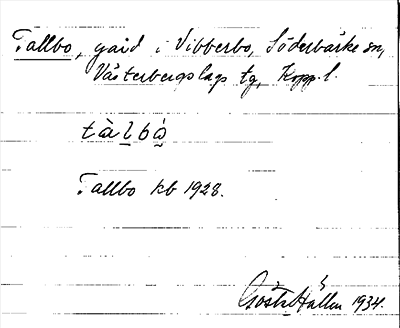 Tallbo, gård i Vibberbo, Söderbärke sn,
Västerbergslags tg, Kopp. l.
tàl̲bò̲
Tallbo kb 1928.
Gösta Hållen 1934.